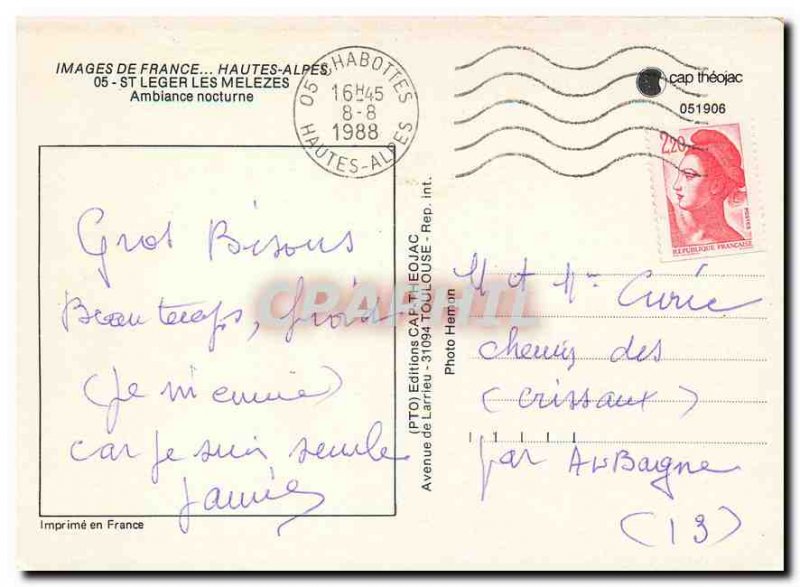 IMAGES DE FRANCE... HAUTES-ALPES
05 - ST LEGER LES MELEZES
Ambiance nocturne
05 CHABOTTES
16H45
8-8
1988
HAUTES-ALPES
cap théojac
051906
2,20
POSTES
REPUBLIQUE FRANÇAISE
Gros Bisous
Beau temps, froid
(Je m'ennuie)
car je suis seule
Janie
CPARAMA
Imprimé en France
(PTO) Editions CAP-THEOJAC
Avenue de Larrieu - 31094 TOULOUSE - Rep. Int.
Photo Hemon
M et Me Curie
chemin des
(Crissaux)
par AuBagne
(13)